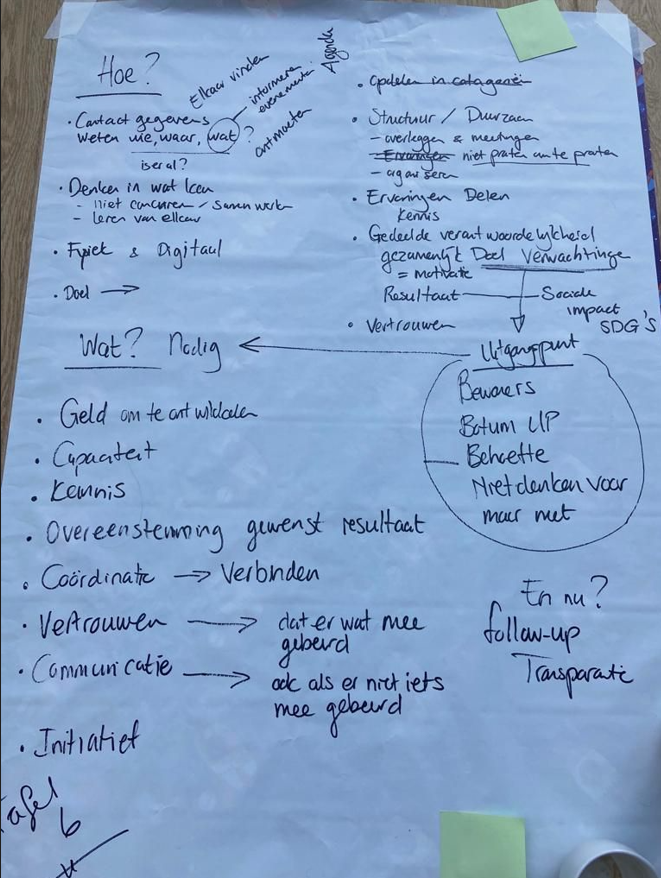 Hoe?
Elkaar vinden
informeren
evenementen
ontmoeten
Agenda
• Contact gegevens
weten wie, waar, wat?
is er al?
• Denken in wat kan
- niet concurreren / samenwerken
- leren van elkaar
• Fysiek & Digitaal
• Doel →
• Opdelen in categorieën
• Structuur / Duurzaam
- overleggen & meetingen
- Ervaringen niet praten om te praten
- organiseren
• Ervaringen Delen
kennis
• Gedeelde verantwoordelijkheid
gezamenlijk Doel Verwachtinge
= motivatie
Resultaat — Sociale
impact
SDG'S
• Vertrouwen
Uitgangspunt
Bewoners
Bottum UP
Behoefte
Niet denken voor
maar met
Wat? Nodig
• Geld om te ontwikkelen
• Capaciteit
• Kennis
• Overeenstemming gewenst resultaat
• Coördinatie → Verbinden
• Vertrouwen → dat er wat mee
gebeurd
• Communicatie → ook als er niet iets
mee gebeurd
• Initiatief
En nu?
follow-up
Transparatie
Tafel
6